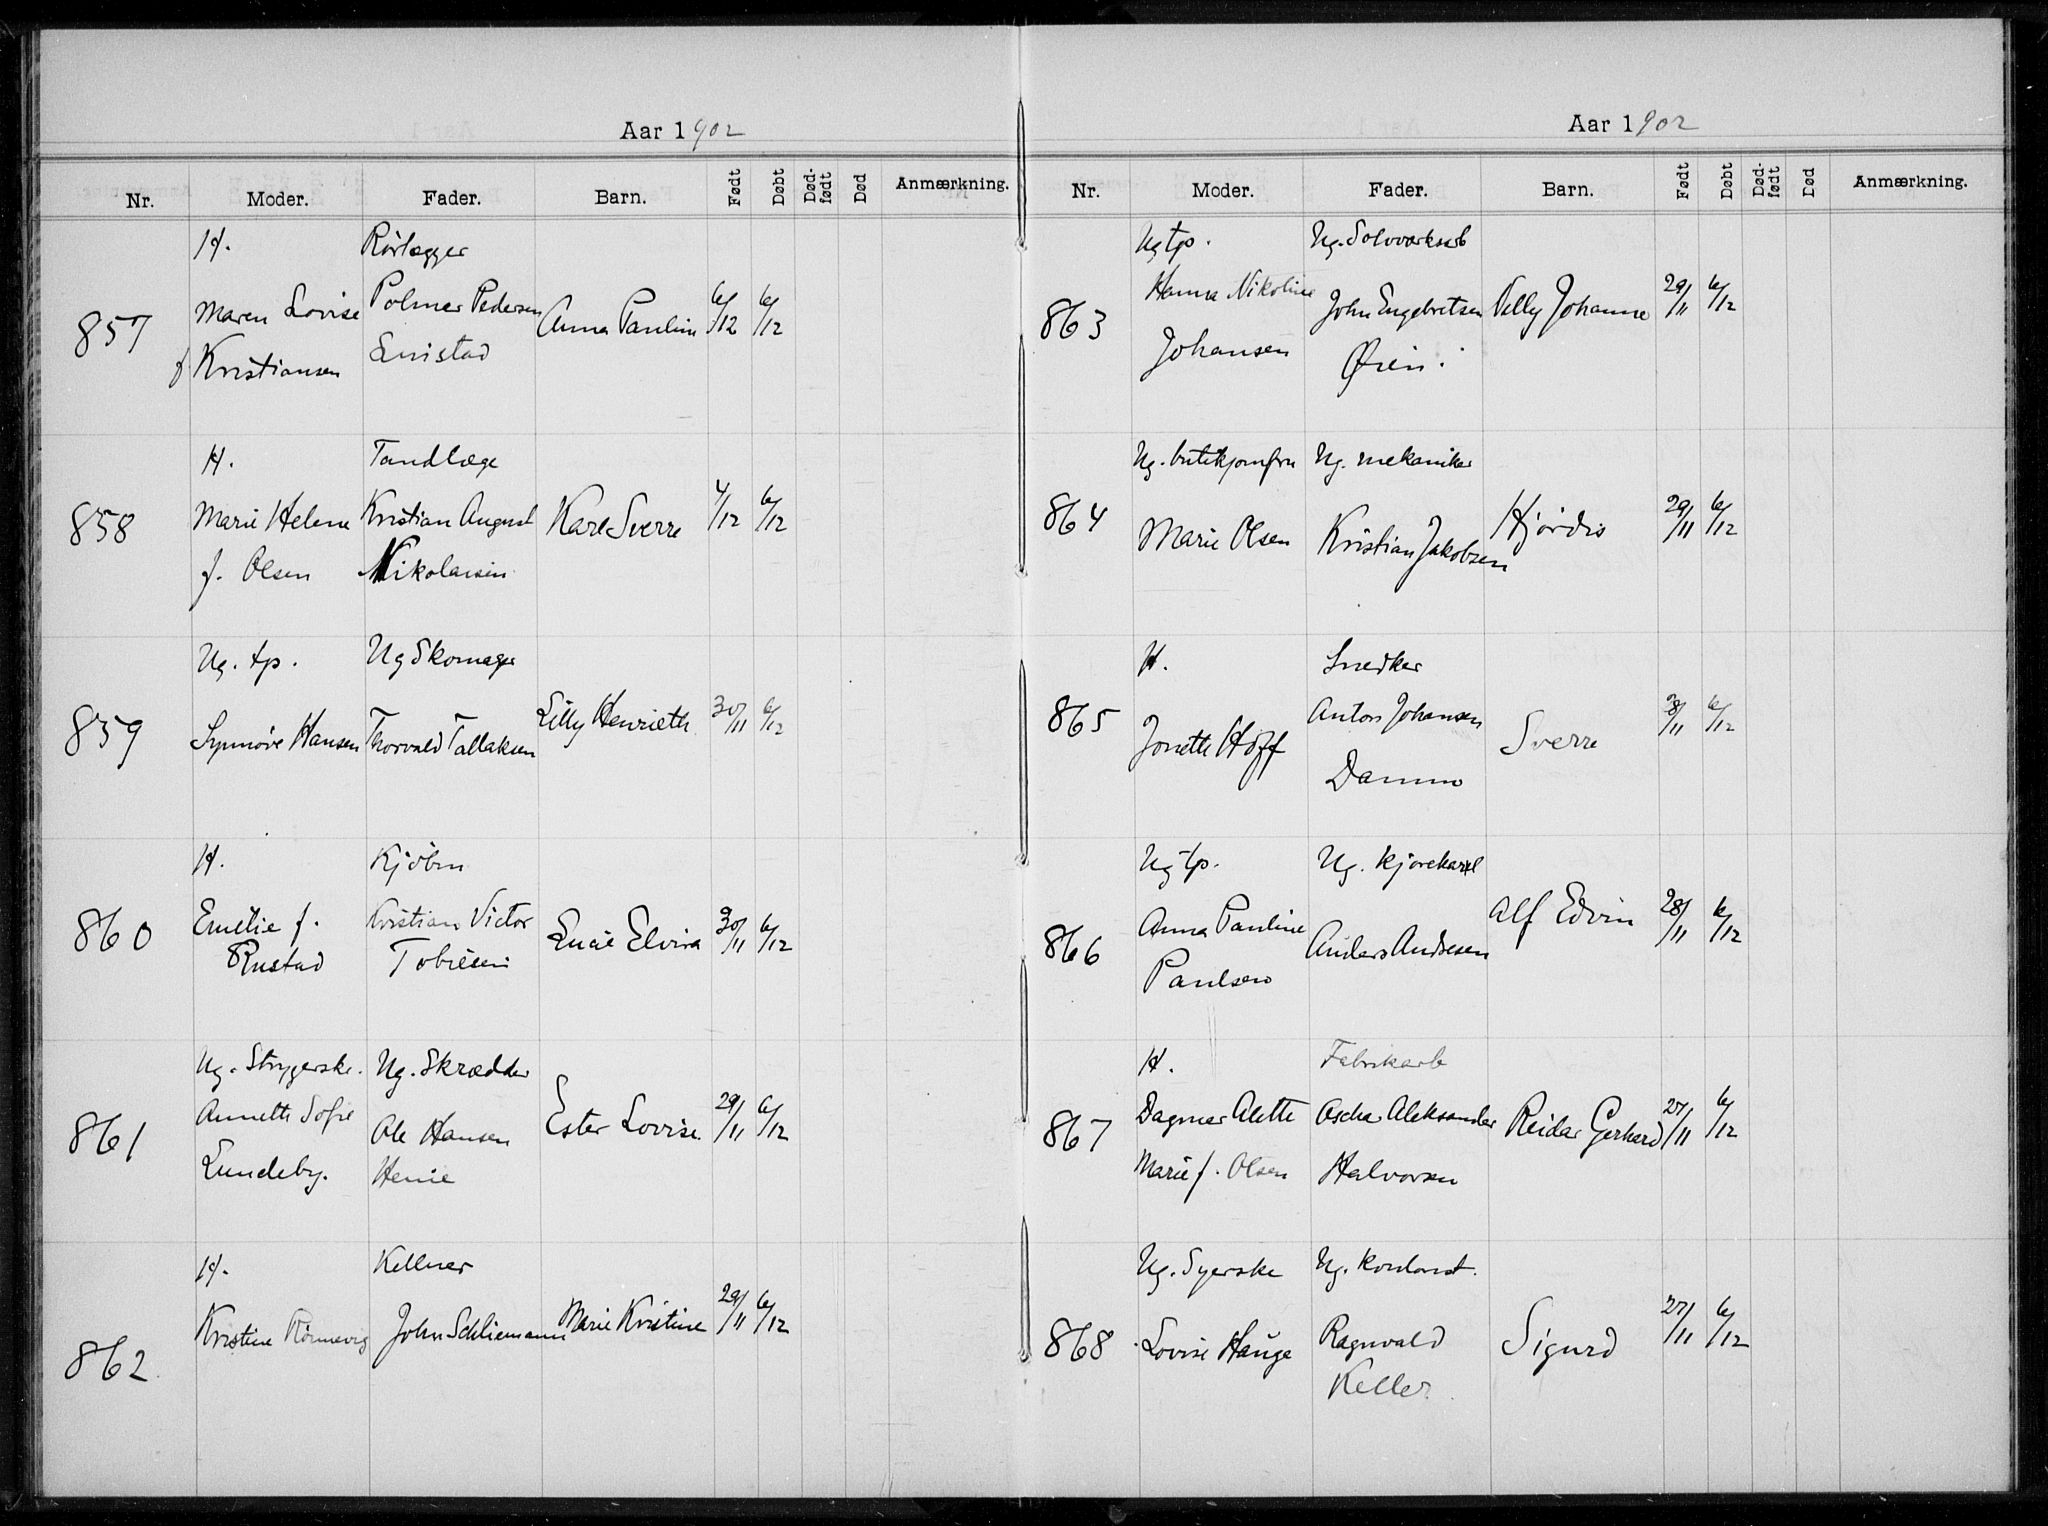 Aar 1902
Nr. Moder. Fader. Barn. Født Døbt Død-født Død Anmærkning.
H. Rørlægger
857 Maren Lovise Polmer Pedersen Anna Paulin 6/12 6/12
f Kristiansen
H. Tandlæge
858 Marie Helene Kristian August Kare Sverre 4/12 6/12
f. Olsen Nikolaisen
Ug. tp. Ug Skomager
859 Synnøve Hansen Thorvald Tallaksen Lilly Henrieth 30/11 6/12
H. Kjøbm
860 Emelie f. Kristian Victor Lucie Elvira 30/11 6/12
Rustad Tobiesen
Ug. Strygerske. Ug. Skrædder
861 Annette Sofie Ole Hansen Ester Lovise. 29/11 6/12
Lundeby. Henie
H. Kellner
862 Kristine Rønnevig John Schliemann Marie Kristine 29/11 6/12
Aar 1902
Nr. Moder. Fader. Barn. Født Døbt Død-født Død Anmærkning.
Ug tp. Ug.
863 Hanna Nikoline John Engebretsen Johanne 29/11 6/12
Johansen Øien.
Ug. butikjomfru Ug. mekaniker
864 Marie Olsen Kristian Jakobsen Hjørdis 29/11 6/12
H. Snedker
865 Jonette Hoff Anton Johansen Sverre 28/11 6/12
Damm
Ug tp. Ug. kjørekarl
866 Anna Pauline Anders Andresen Alf Edvin 28/11 6/12
Paulsen
H. Fabrikarb
867 Dagmar Alette Oscha Aleksander Reidar Gerhard 27/11 6/12
Marie f. Olsen Halvorsen
Ug. Syerske Ug. kontorist.
868 Lovise Hauge Ragnvald Sigurd 27/11 6/12
Keller.